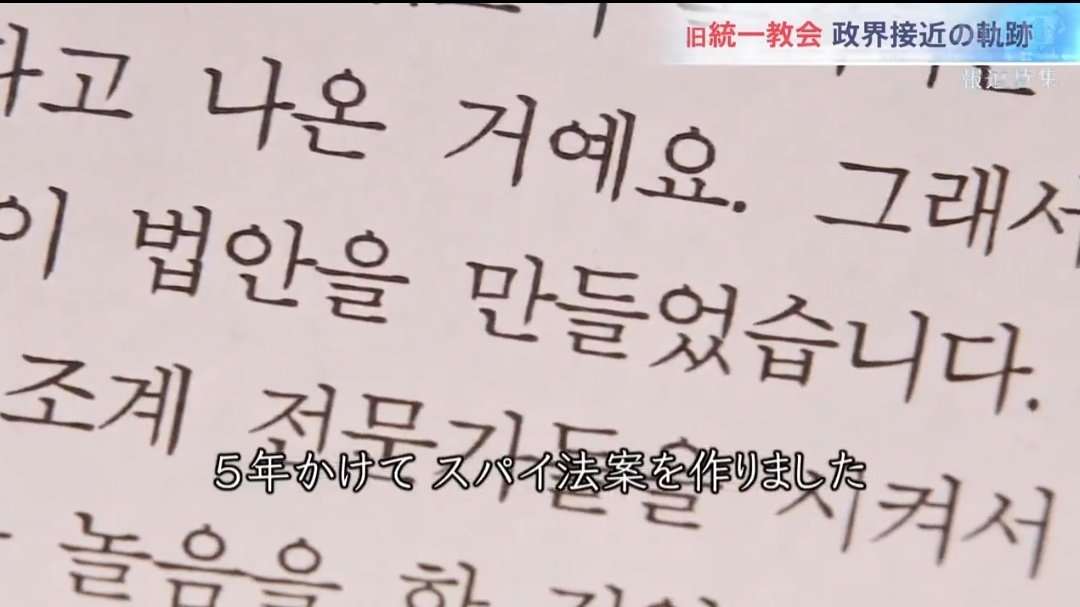 旧統一教会 政界接近の軌跡
報道特集
고 나온 거예요. 그래서
이 법안을 만들었습니다.
조계 전문가들을 시켜서
5年かけて スパイ法案を作りました
놀음을 한